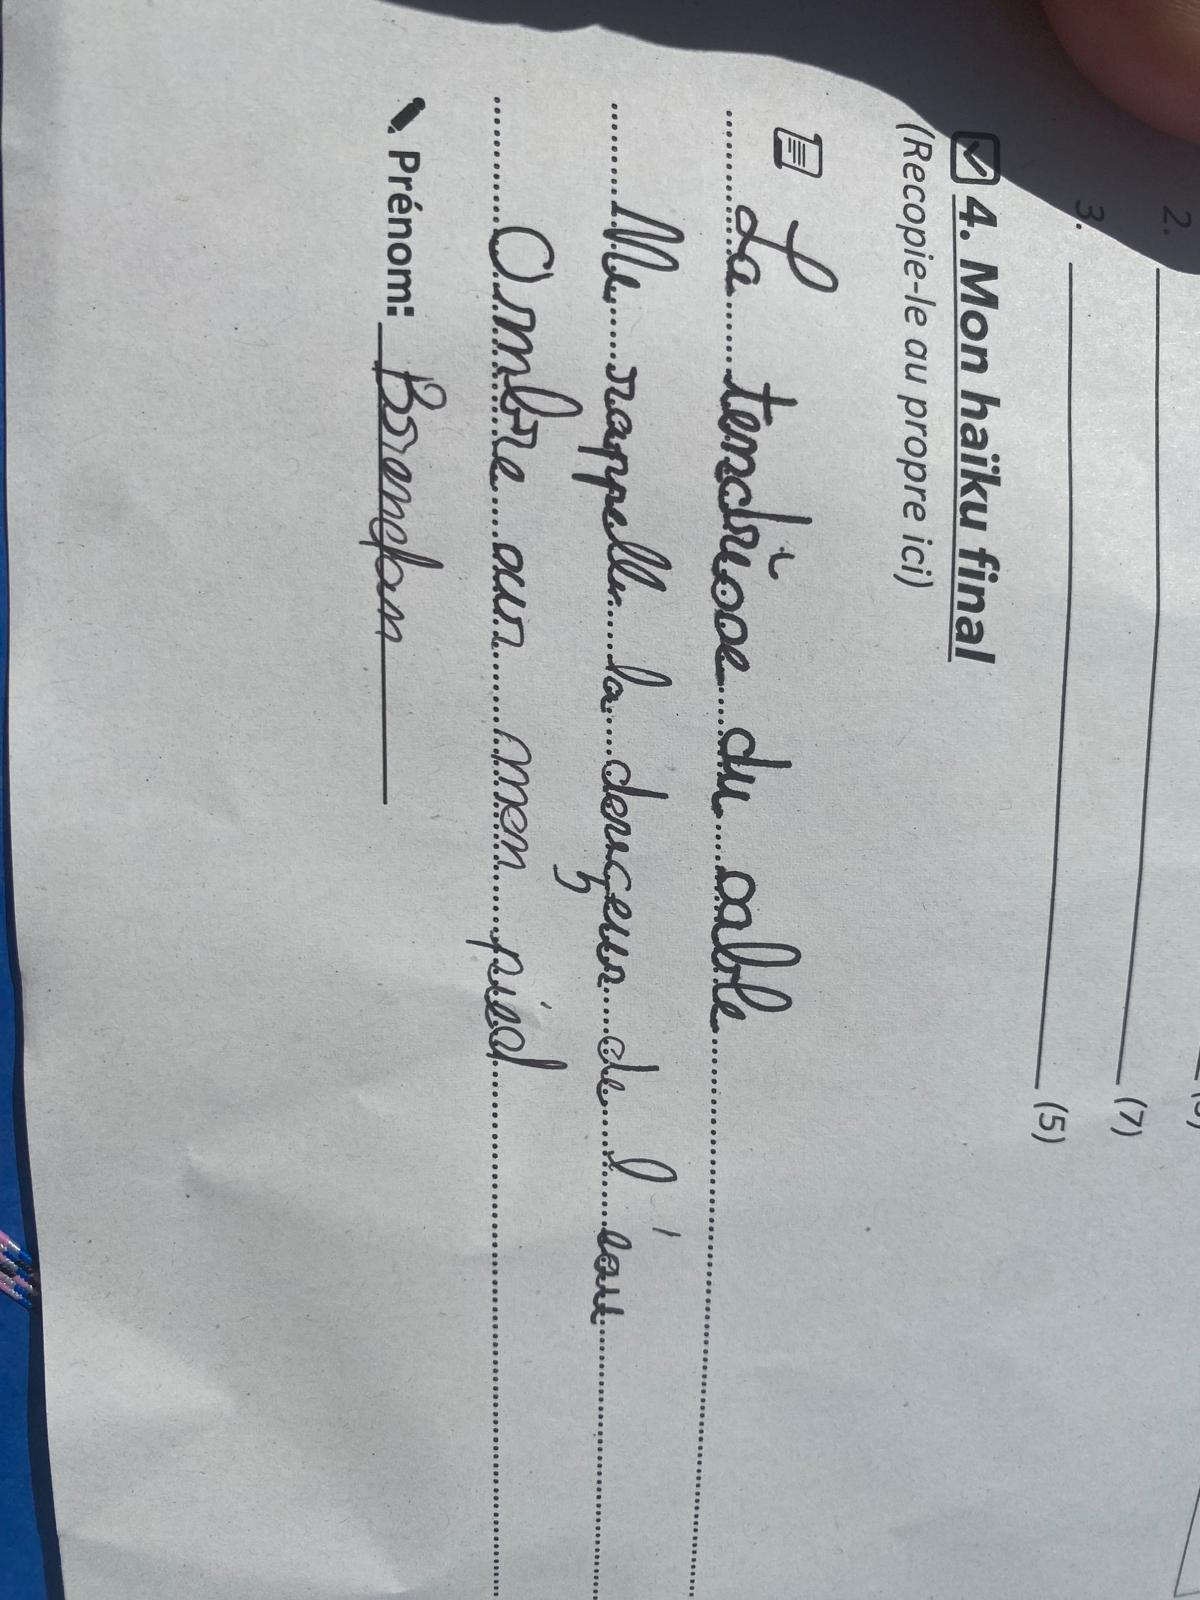 2.
(7)
3. (5)
4. Mon haïku final
(Recopie-le au propre ici)
La tendrisse du sable
Me rappelle la douçeur de l'eau
Ombre sur mon pied
Prénom: Brandon